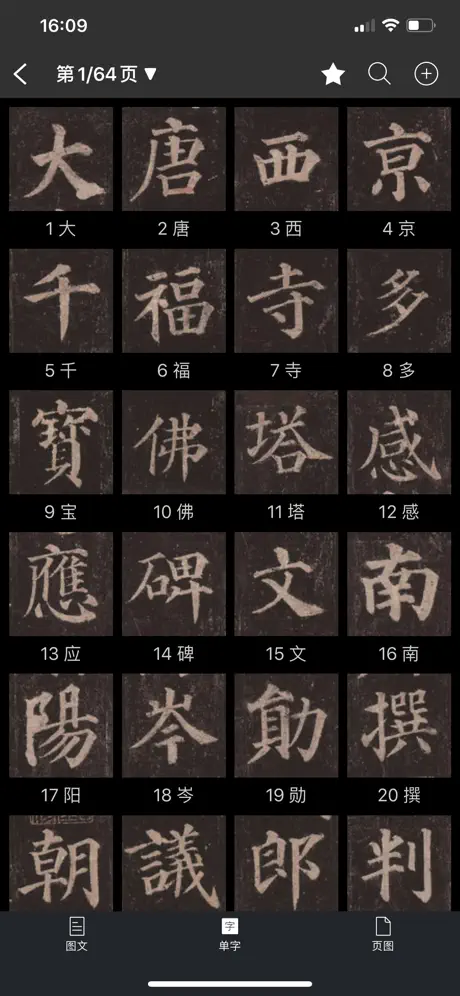 16:09
第1/64页▼
大 唐 西 京
1 大 2 唐 3 西 4 京
千 福 寺 多
5 千 6 福 7 寺 8 多
寶 佛 塔 感
9 宝 10 佛 11 塔 12 感
應 碑 文 南
13 应 14 碑 15 文 16 南
陽 岑 勛 撰
17 阳 18 岑 19 勋 20 撰
朝 議 郎 判
字
图文 单字 页图